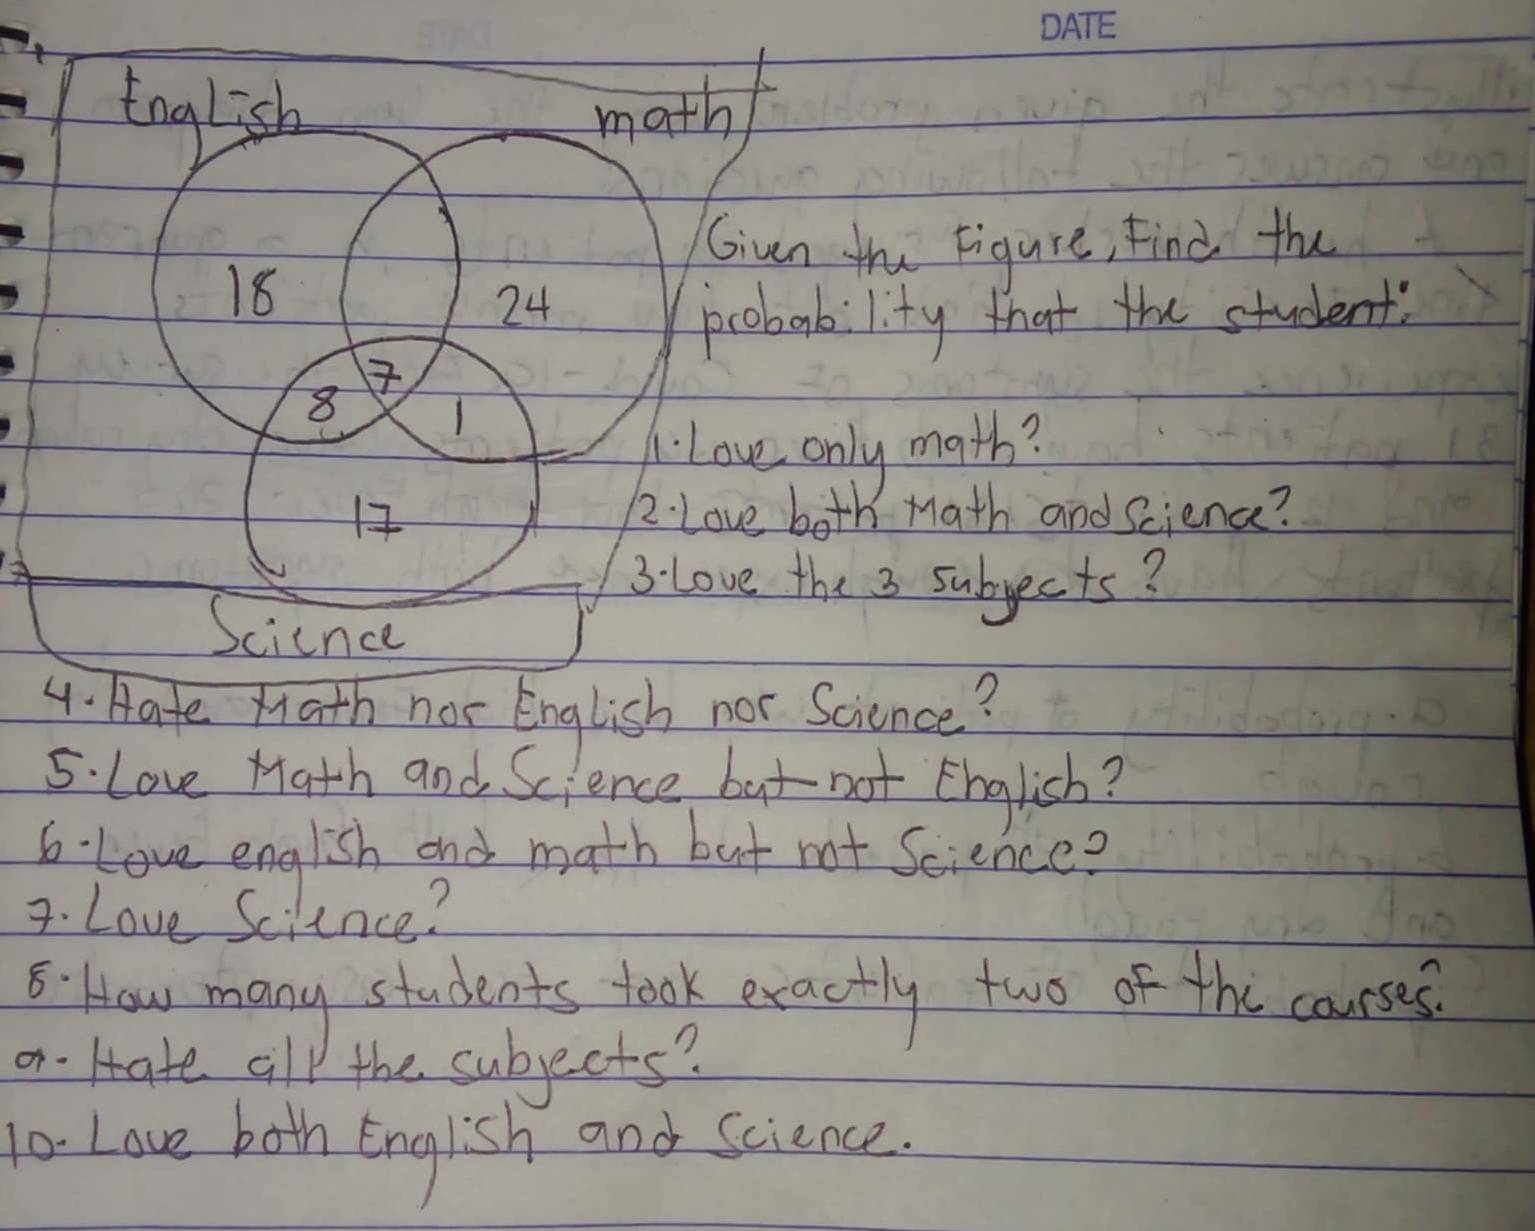 DATE
English math
18 24
7
8 1
17
Science
Given the Figure, Find the
probability that the student:
1. Love only math?
2. Love both Math and Science?
3. Love the 3 subjects?
4. Hate Math nor English nor Science?
5. Love Math and Science but not English?
6. Love english and math but not Science?
7. Love Science?
8. How many students took exactly two of the courses?
9. Hate all the subjects?
10. Love both English and Science.